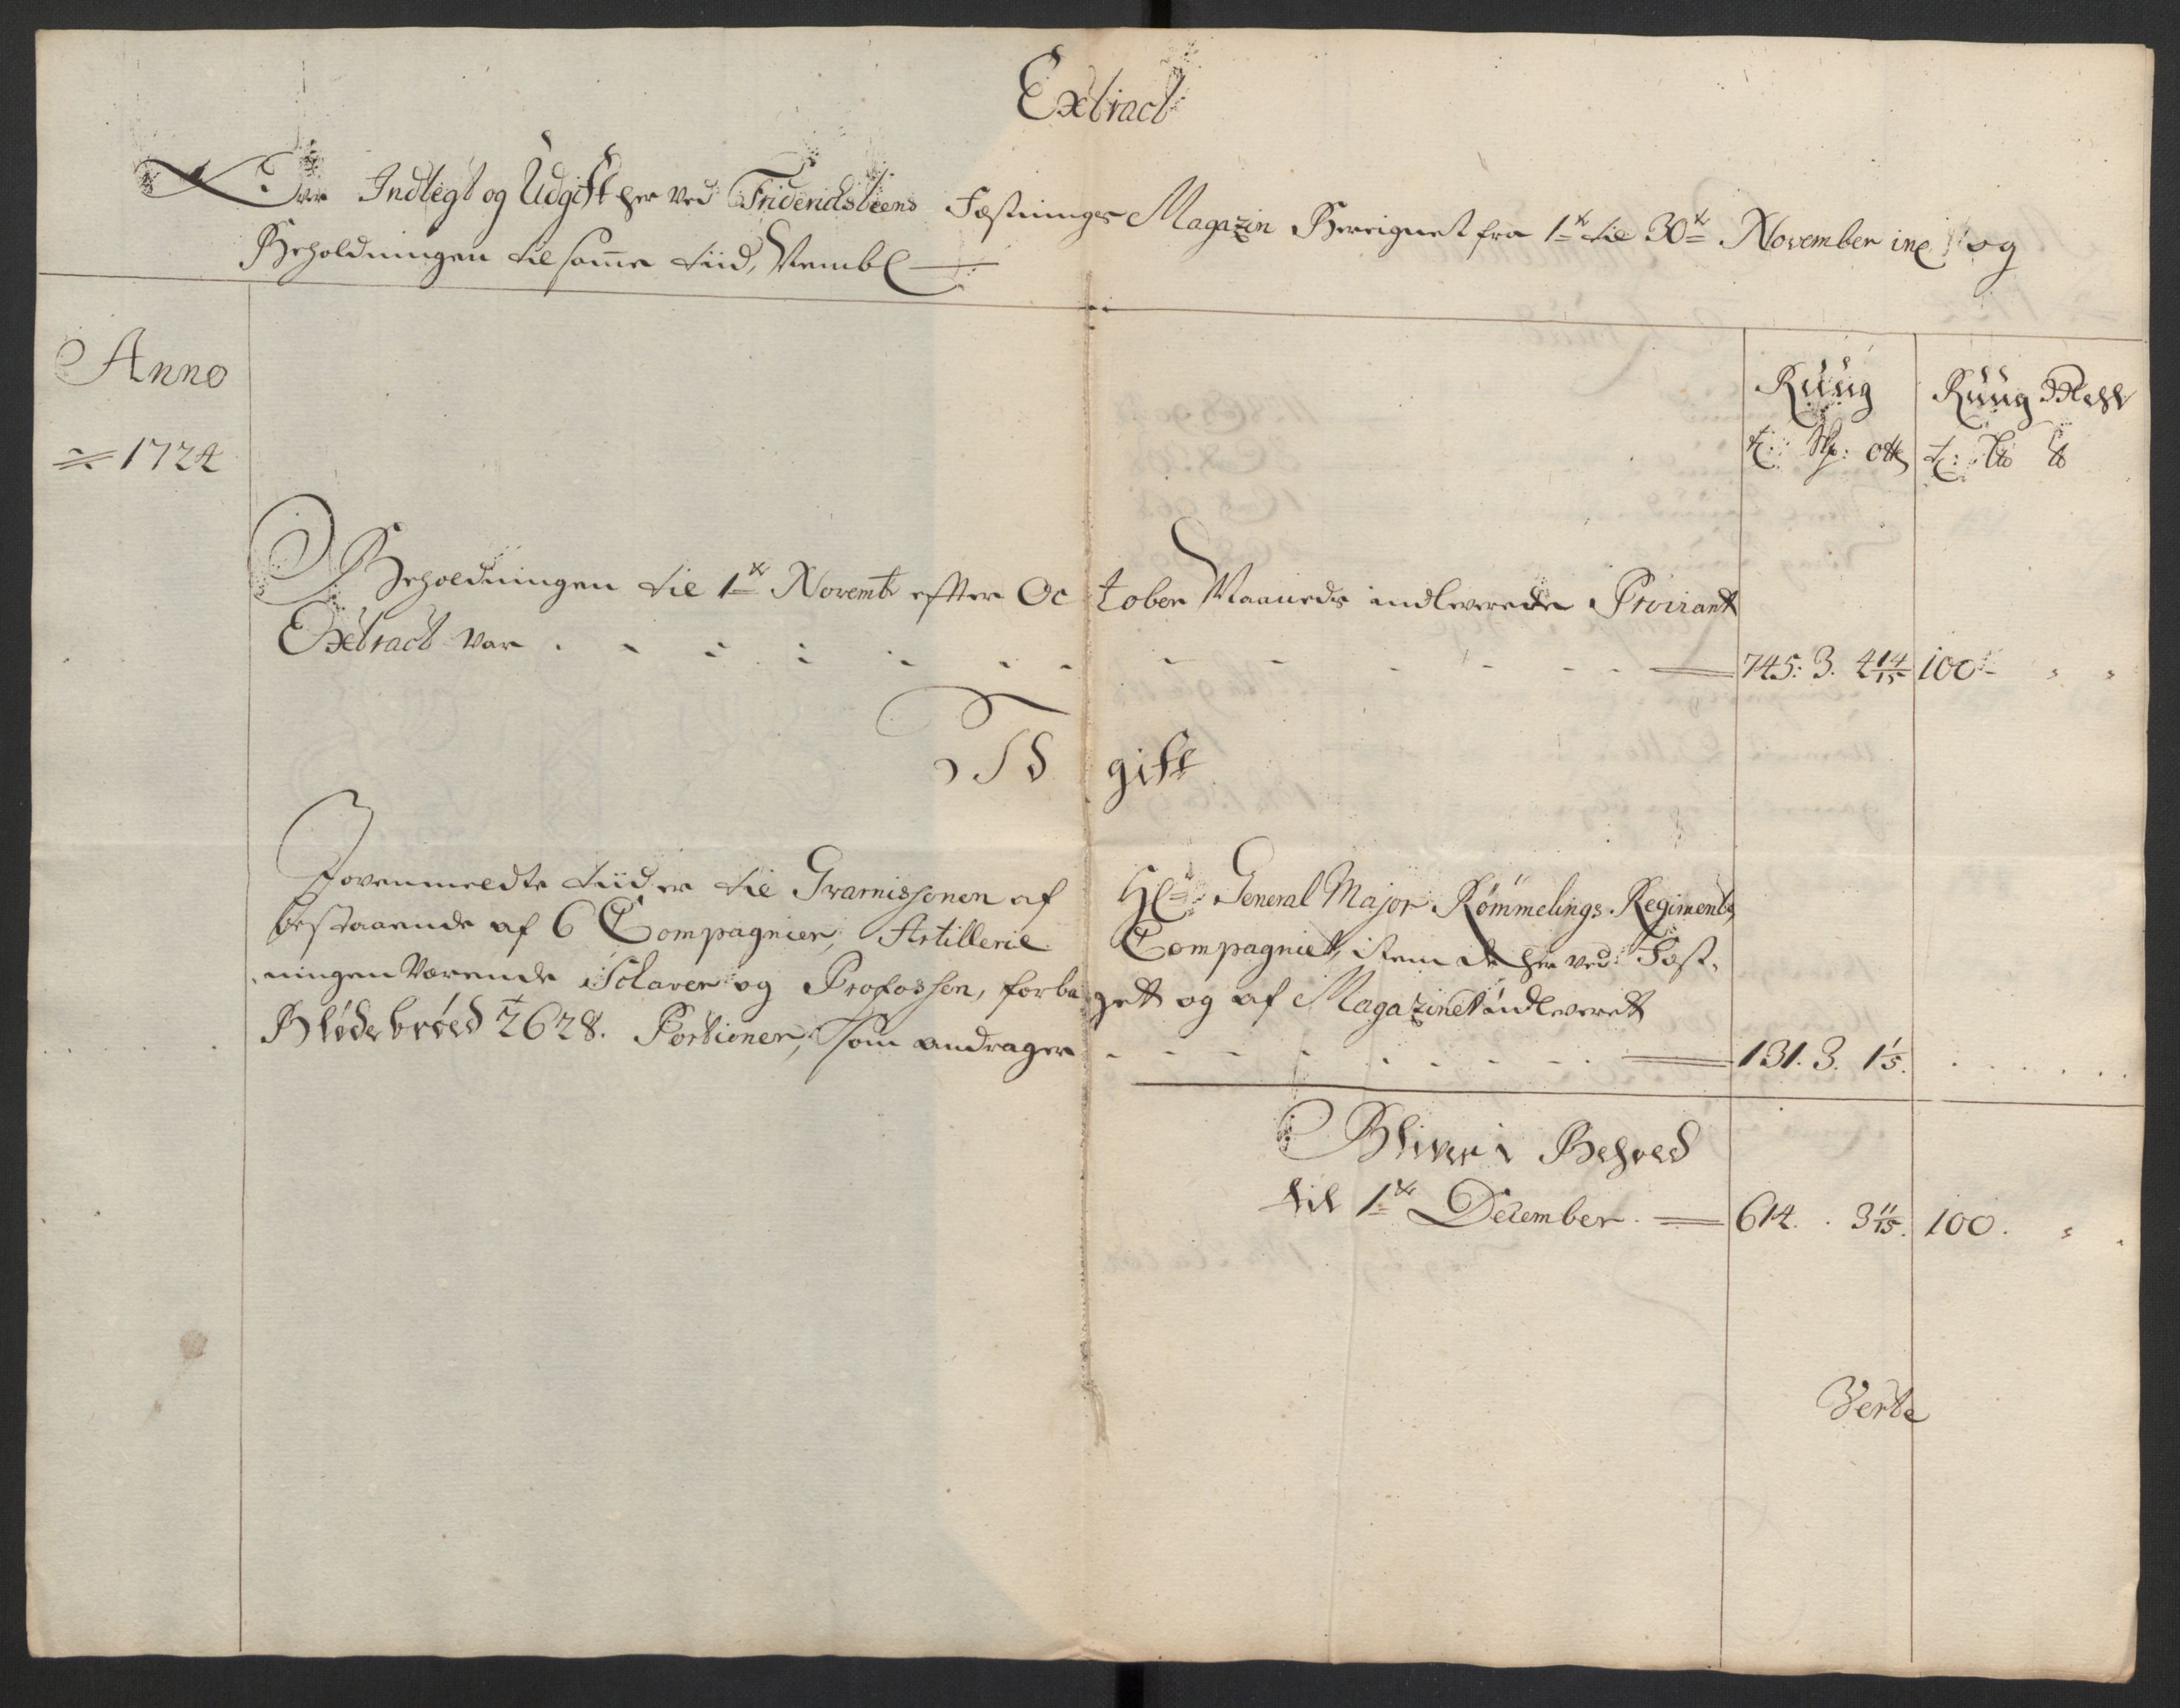 Extract
Over Indlegt og Udgift her ved Friderichsteens Fæstnings Magazin Bereignet fra 1te til 30te November inc: og
Beholdningen til samme tiid, Nembl
Anno
1724
Ruug
Ruug Mehl
t: Skp: ott
t: L𝔱b ℔
Beholdningen til 1te Novembr effter October Maaneds indleverede Proviant
Extract var
745: 3. 4 14/15
100
Udgift
Jovenmeldte tiid er til Gvarnissonen af Hr: General Major Rømmelings Regiment,
bestaaende af 6 Compagnier, Artillerie Compagniet, item de her ved Fæst-
ningen Værende Sclaver og Profossen, forbaget og af Magazinet udleveret
Blødebrød 2628. Portioner, Som andrager
131. 3. 1 1/5.
Bliver i Behold
til 1te December
614. . 3 11/15.
100.
Verte